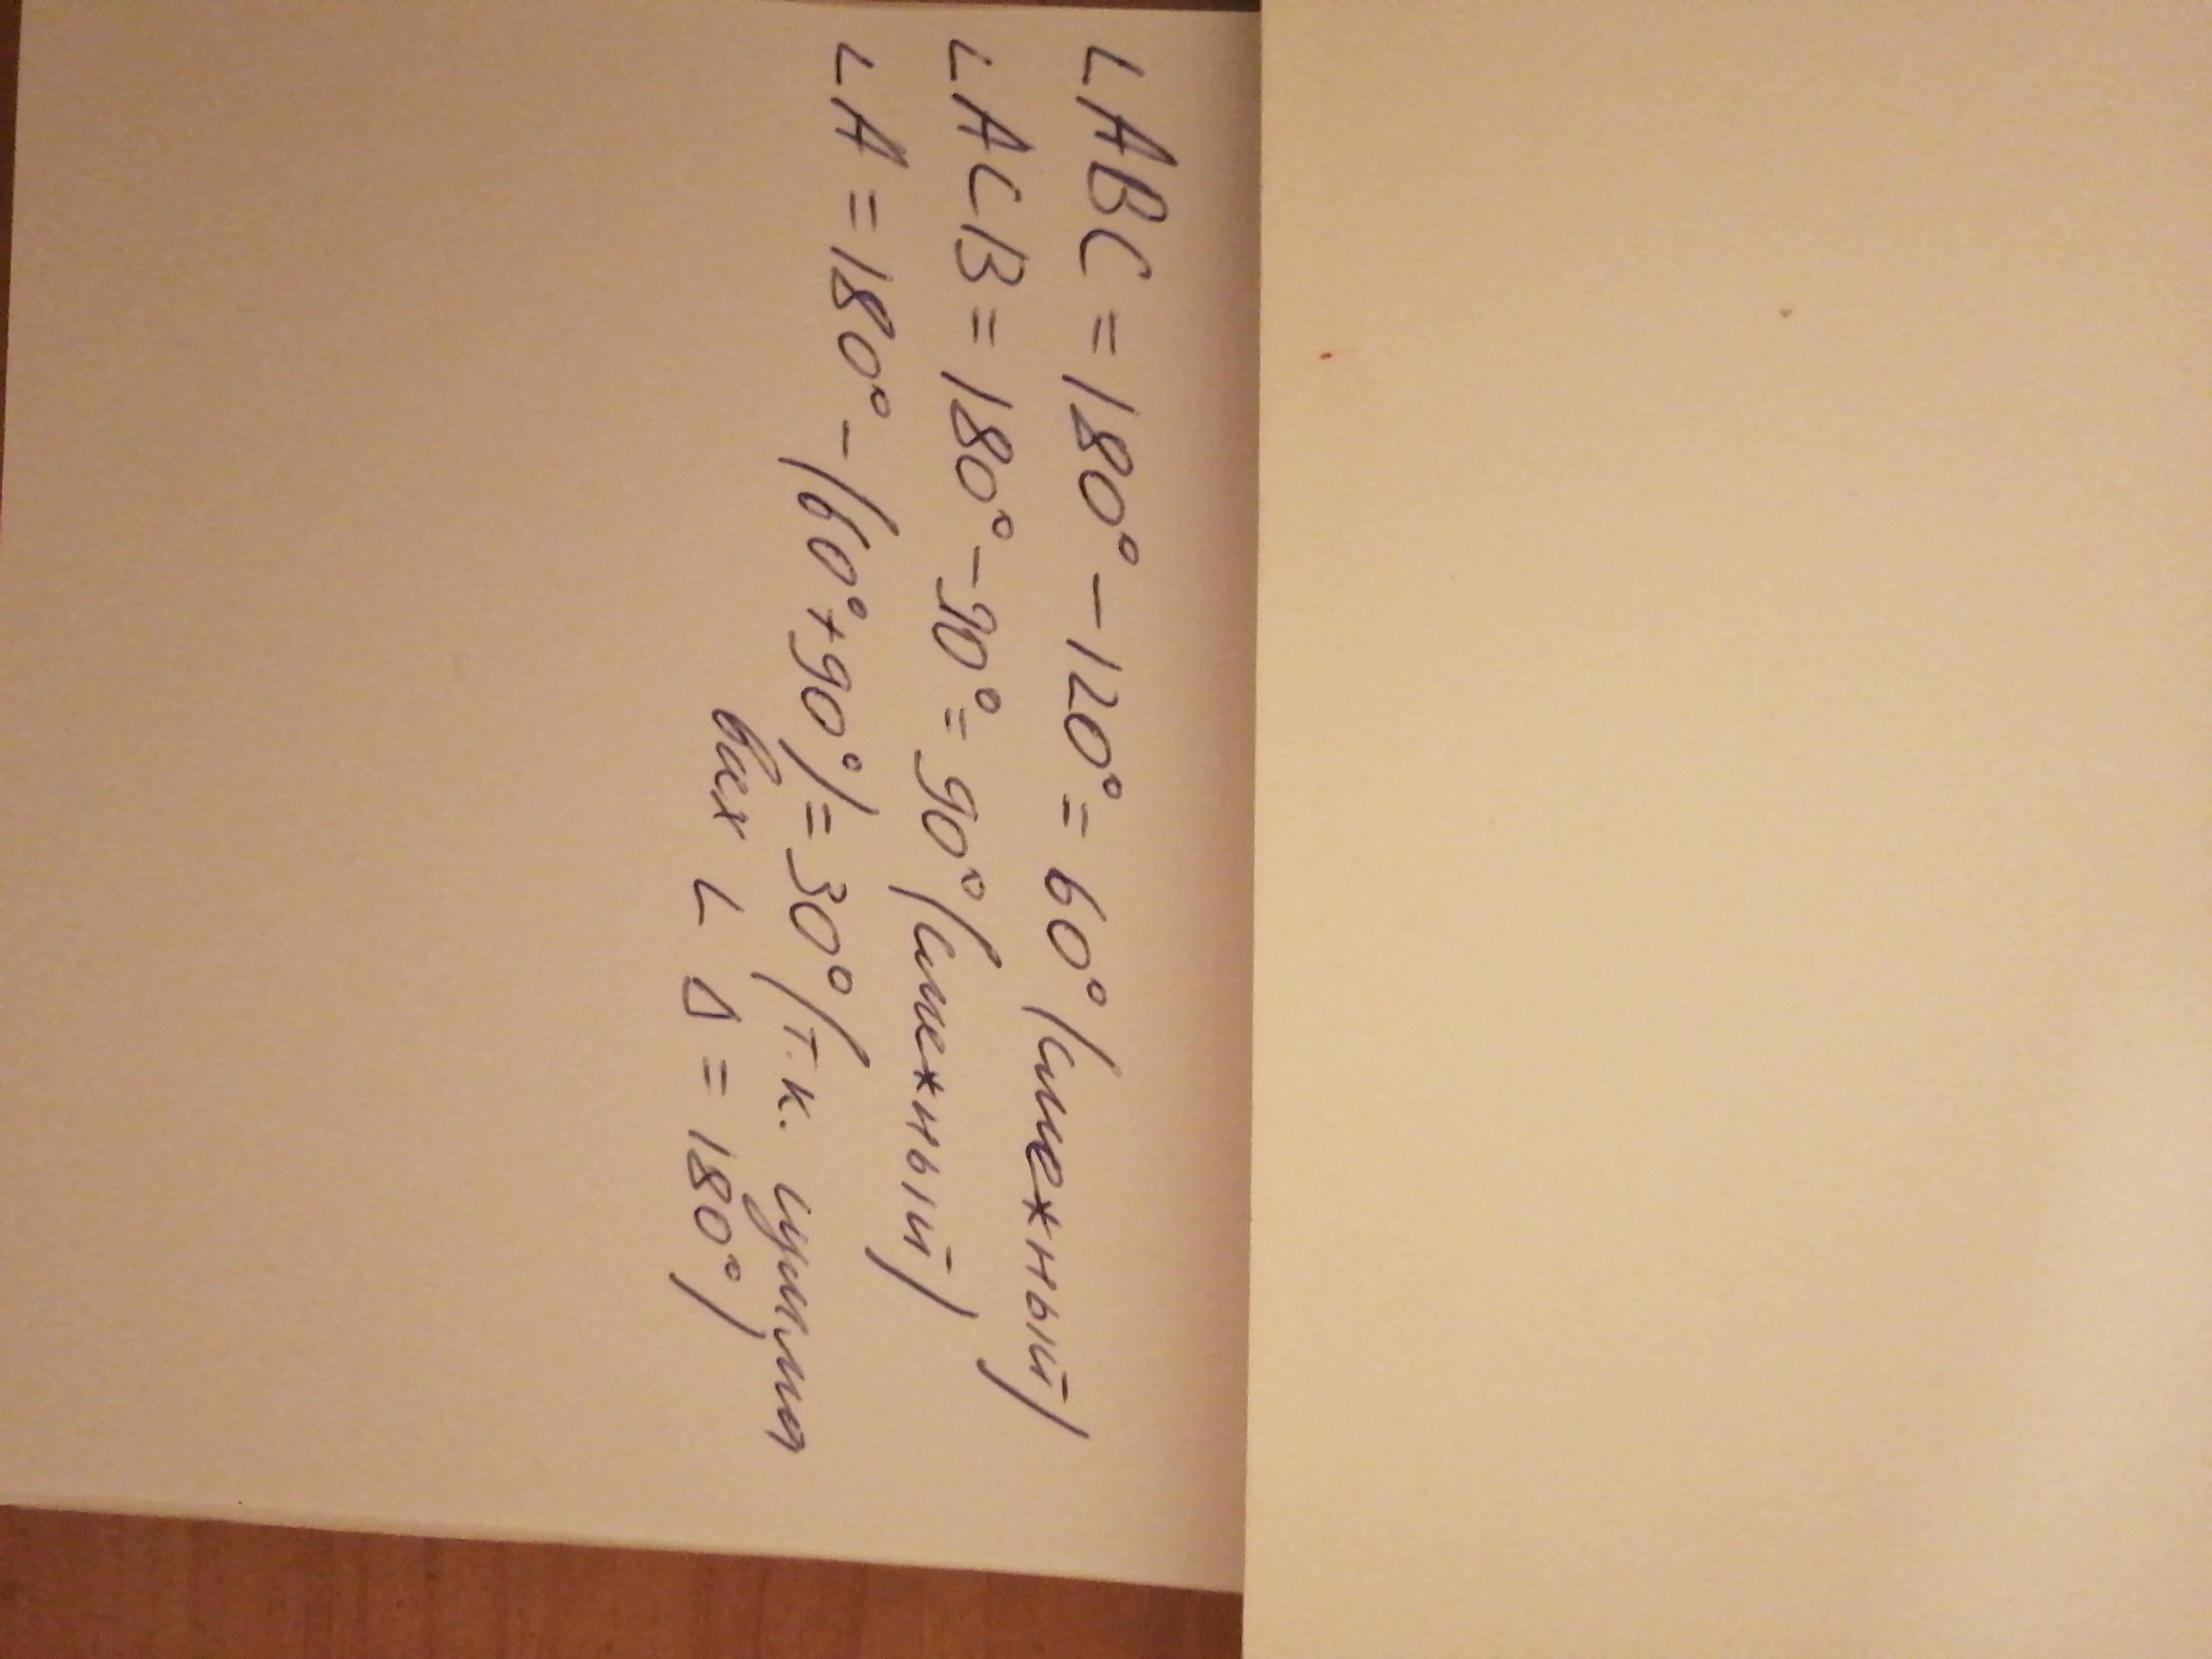 ∠ABC = 180° - 120° = 60° (смежный)
∠ACB = 180° - 90° = 90° (смежный)
∠A = 180° - (60° + 90°) = 30° (т.к. сумма
всех ∠ Δ = 180°)